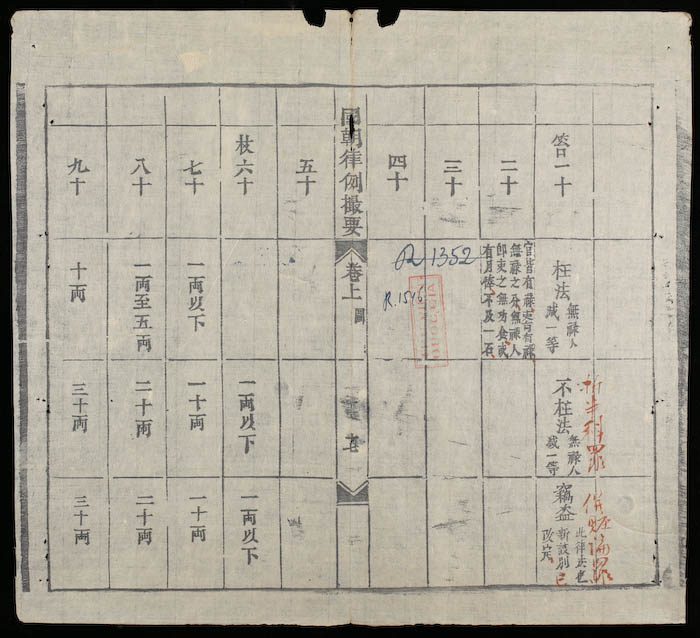 笞一十
枉法
無祿人
減一等
不枉法
無祿人
減一等
竊盗
此律
新設別
改定
折半科罪
併贓論罪
二十
官皆有祿吏皆有祿
無祿之分無祿人
即吏之無功食或
有月俸不及一石
三十
四十
國朝律例撮要
卷上
圖
R.1352
R.1546
五十
杖六十
一兩以下
一兩以下
七十
一兩以下
一十兩
一十兩
八十
一兩至五兩
二十兩
二十兩
九十
十兩
三十兩
三十兩